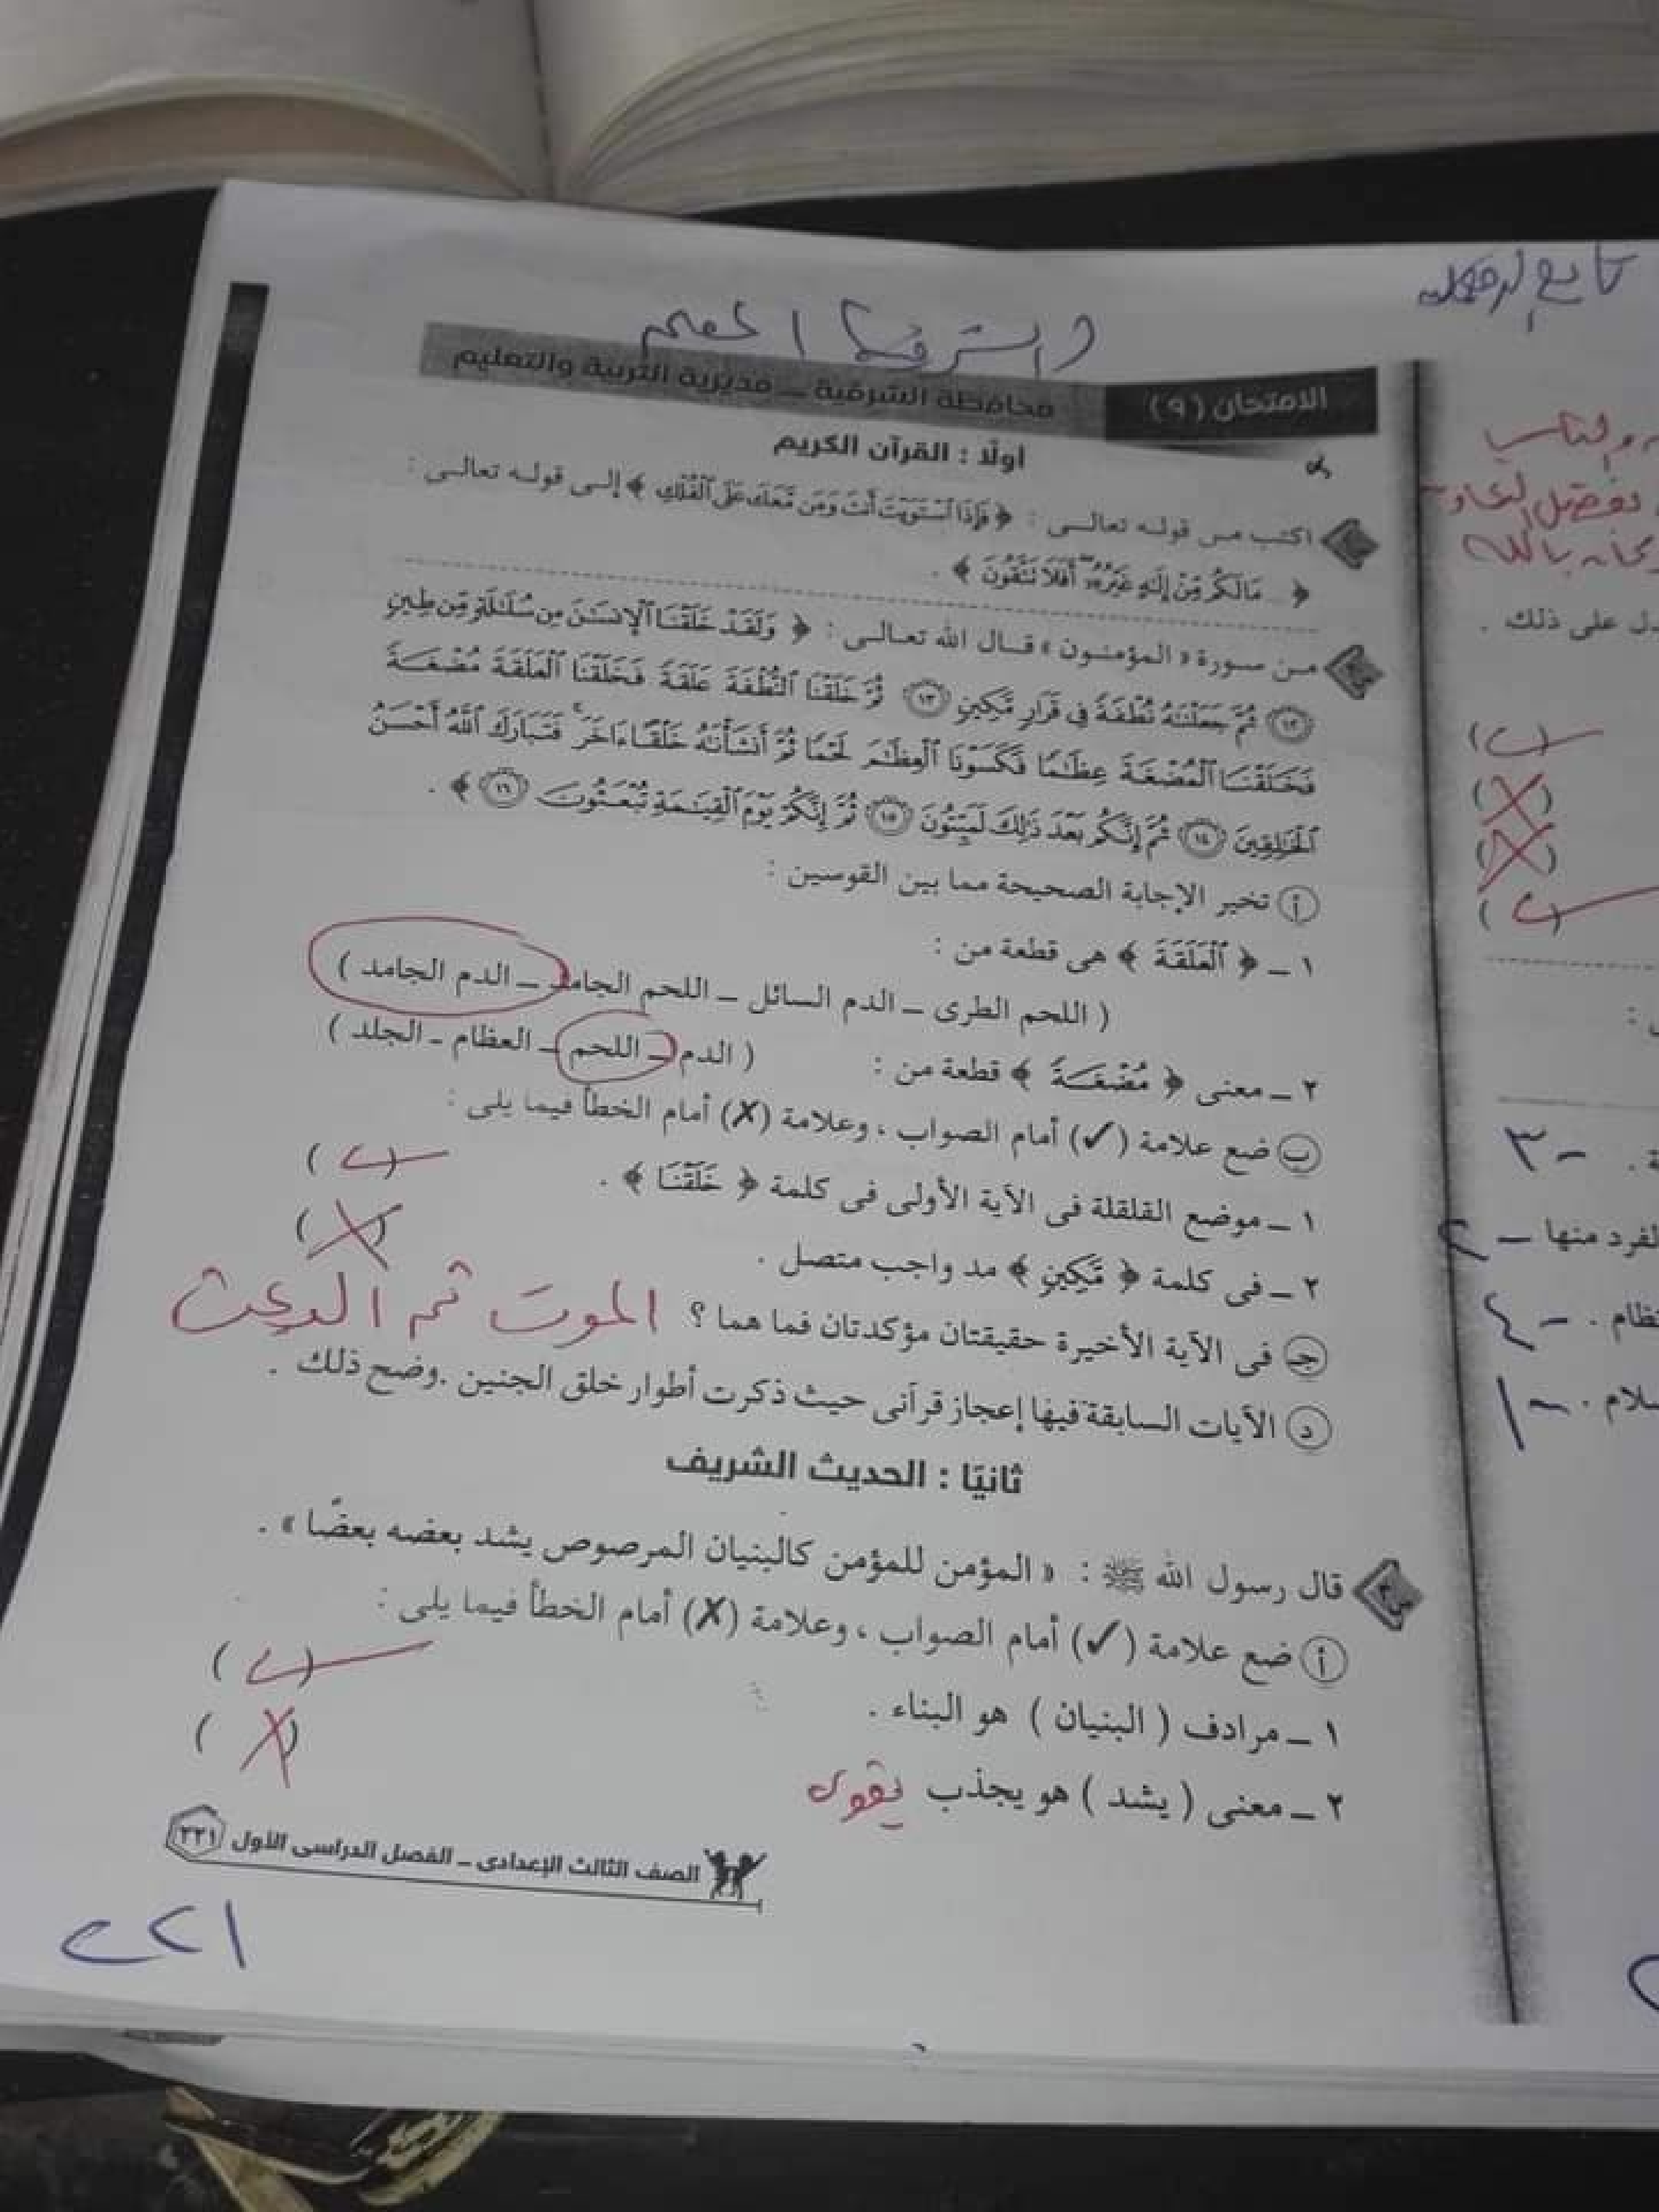 الامتحان (٩) محافظة الشرقية – مديرية التربية والتعليم
أولًا : القرآن الكريم
اكتب من قوله تعالى : ﴿ فَإِذَا ٱسْتَوَيْتَ أَنتَ وَمَن مَّعَكَ عَلَى ٱلْفُلْكِ ﴾ إلى قوله تعالى :
﴿ .. مَا لَكُم مِّنْ إِلَٰهٍ غَيْرُهُۥٓ أَفَلَا تَتَّقُونَ ﴾ .
من سورة « المؤمنون » قال الله تعالى : ﴿ وَلَقَدْ خَلَقْنَا ٱلْإِنسَٰنَ مِن سُلَٰلَةٍ مِّن طِينٍ
﴿١٢﴾ ثُمَّ جَعَلْنَٰهُ نُطْفَةً فِى قَرَارٍ مَّكِينٍ ﴿١٣﴾ ثُمَّ خَلَقْنَا ٱلنُّطْفَةَ عَلَقَةً فَخَلَقْنَا ٱلْعَلَقَةَ مُضْغَةً
فَخَلَقْنَا ٱلْمُضْغَةَ عِظَٰمًا فَكَسَوْنَا ٱلْعِظَٰمَ لَحْمًا ثُمَّ أَنشَأْنَٰهُ خَلْقًا ءَاخَرَ ۚ فَتَبَارَكَ ٱللَّهُ أَحْسَنُ
ٱلْخَٰلِقِينَ ﴿١٤﴾ ثُمَّ إِنَّكُم بَعْدَ ذَٰلِكَ لَمَيِّتُونَ ﴿١٥﴾ ثُمَّ إِنَّكُمْ يَوْمَ ٱلْقِيَٰمَةِ تُبْعَثُونَ ﴿١٦﴾ ﴾ .
أ تخير الإجابة الصحيحة مما بين القوسين :
١ – ﴿ ٱلْعَلَقَةَ ﴾ هى قطعة من :
( اللحم الطرى – الدم السائل – اللحم الجامد – الدم الجامد )
٢ – معنى ﴿ مُضْغَةً ﴾ قطعة من : ( الدم – اللحم – العظام – الجلد )
ب ضع علامة (✓) أمام الصواب ، وعلامة (✗) أمام الخطأ فيما يلى :
١ – موضع القلقلة فى الآية الأولى فى كلمة ﴿ خَلَقْنَا ﴾ . (✓)
٢ – فى كلمة ﴿ مَّكِينٍ ﴾ مد واجب متصل . (✗)
جـ فى الآية الأخيرة حقيقتان مؤكدتان فما هما ؟ الموت ثم البعث
د الآيات السابقة فيها إعجاز قرآنى حيث ذكرت أطوار خلق الجنين . وضح ذلك .
ثانيًا : الحديث الشريف
قال رسول الله ﷺ : « المؤمن للمؤمن كالبنيان المرصوص يشد بعضه بعضًا » .
أ ضع علامة (✓) أمام الصواب ، وعلامة (✗) أمام الخطأ فيما يلى :
١ – مرادف ( البنيان ) هو البناء . (✓)
٢ – معنى ( يشد ) هو يجذب يقوى (✗)
الصف الثالث الإعدادى – الفصل الدراسى الأول ٢٢١
٢٢١
والناس
بالله
دل على ذلك .
(✓)
(✗)
(✗)
(✓)
٣ –
لفرد منها – ٢
ظام . – ٤
سلام . – ١